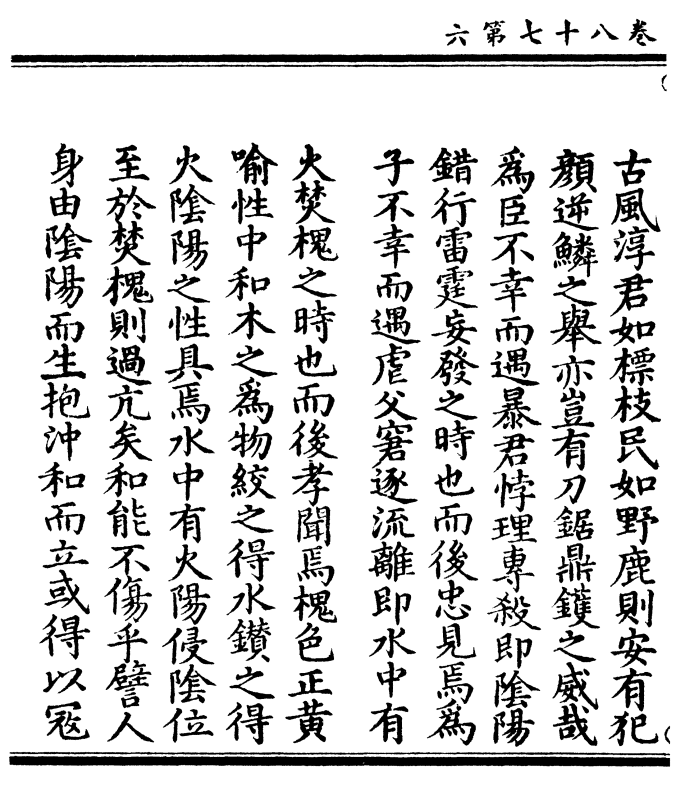 卷八十七第六
古風淳君如標枝民如野鹿則安有犯
顔逆鱗之舉亦豈有刀鋸鼎鑊之威哉
爲臣不幸而遇暴君悖理專殺即陰陽
錯行雷霆妄發之時也而後忠見焉爲
子不幸而遇虐父窘逐流離即水中有
火焚槐之時也而後孝聞焉槐色正黃
喻性中和木之爲物絞之得水鑚之得
火陰陽之性具焉水中有火陽侵陰位
至於焚槐則過亢矣和能不傷乎譬人
身由陰陽而生抱沖和而立或得以寇